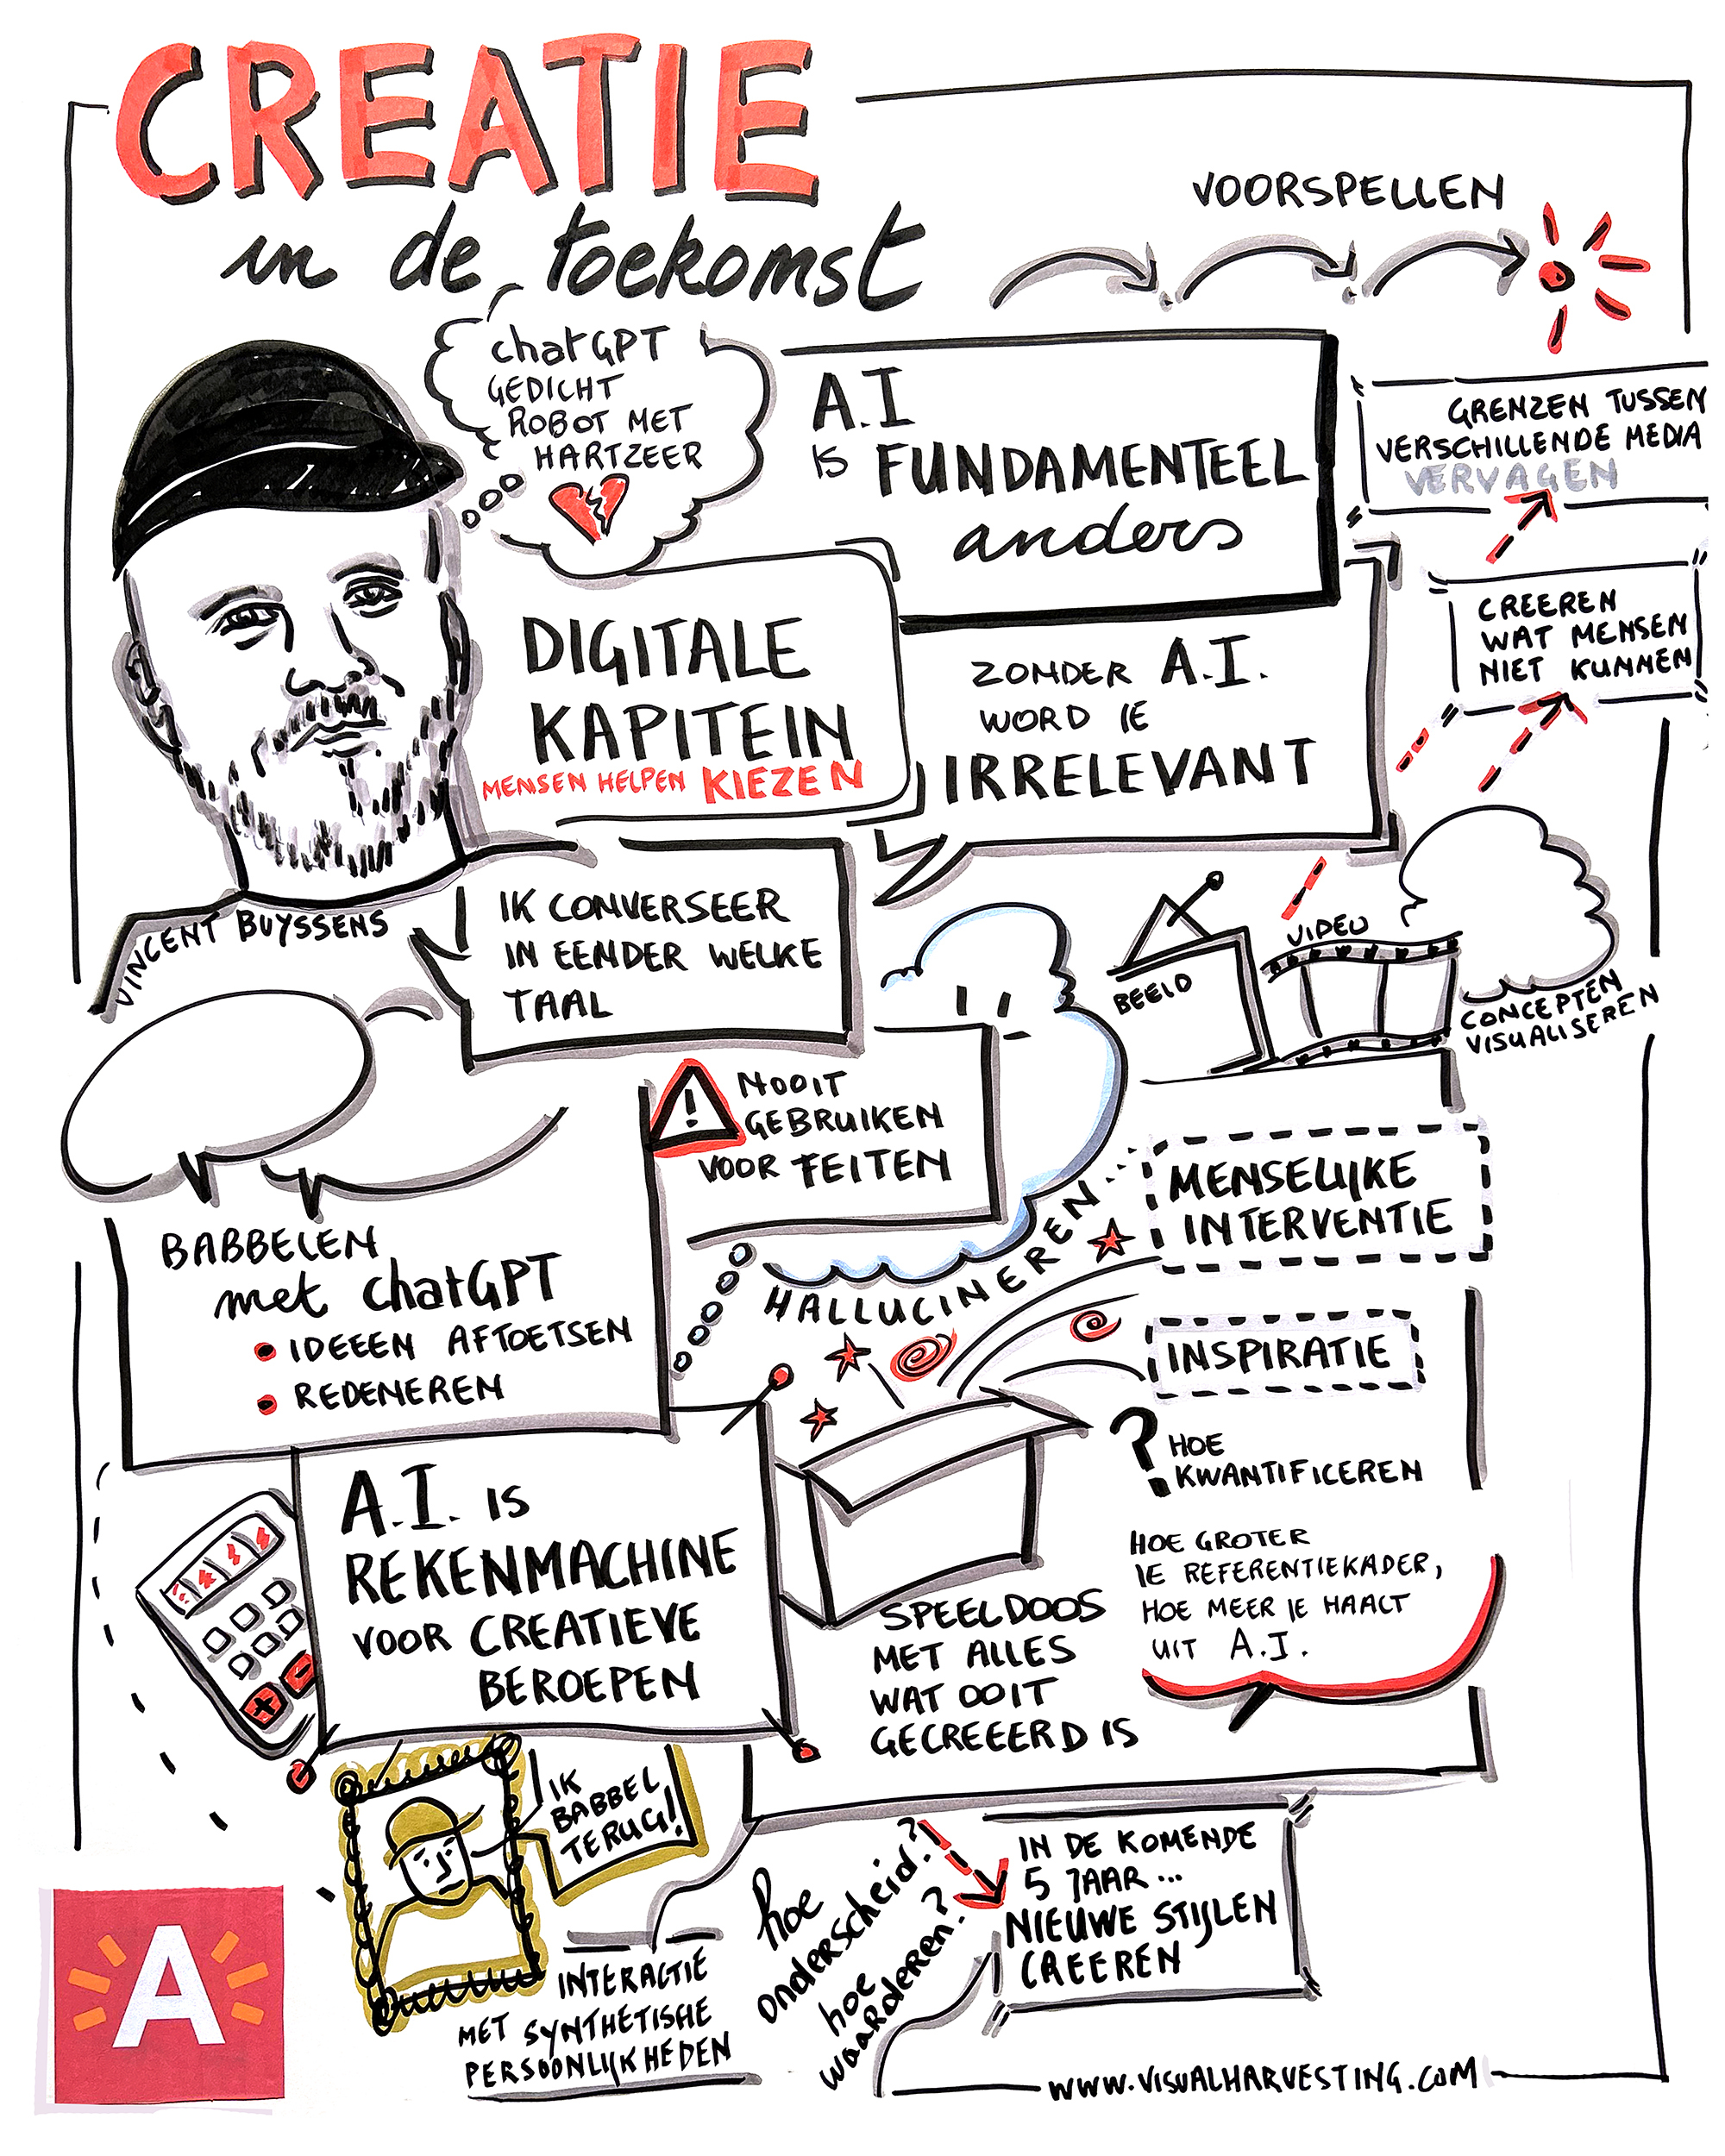 CREATIE
in de toekomst
VOORSPELLEN
chatGPT
GEDICHT
ROBOT MET
HARTZEER
A.I
IS FUNDAMENTEEL
anders
GRENZEN TUSSEN
VERSCHILLENDE MEDIA
VERVAGEN
CREEREN
WAT MENSEN
NIET KUNNEN
DIGITALE
KAPITEIN
MENSEN HELPEN KIEZEN
ZONDER A.I.
WORD JE
IRRELEVANT
VINCENT BUYSSENS
IK CONVERSEER
IN EENDER WELKE
TAAL
BEELD
VIDEO
CONCEPTEN
VISUALISEREN
!
NOOIT
GEBRUIKEN
VOOR FEITEN
HALLUCINEREN...
MENSELIJKE
INTERVENTIE
BABBELEN
met chatGPT
• IDEEEN AFTOETSEN
• REDENEREN
INSPIRATIE
? HOE
KWANTIFICEREN
A.I. IS
REKENMACHINE
VOOR CREATIEVE
BEROEPEN
+ -
SPEELDOOS
MET ALLES
WAT OOIT
GECREEERD IS
HOE GROTER
JE REFERENTIEKADER,
HOE MEER JE HAALT
UIT A.I.
IK
BABBEL
TERUG!
INTERACTIE
MET SYNTHETISCHE
PERSOONLIJKHEDEN
hoe
onderscheid?
hoe
waarderen?
IN DE KOMENDE
5 JAAR...
NIEUWE STIJLEN
CREEREN
A
WWW.VISUALHARVESTING.COM